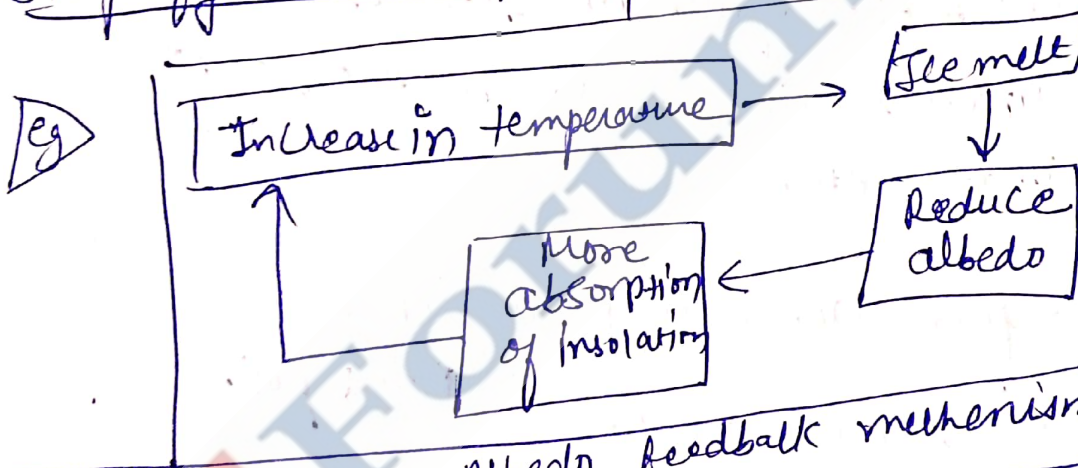 eg
Increase in temperature
Ice melt
Reduce
albedo
More
absorption
of Insolation
feedback mechanism
Forum